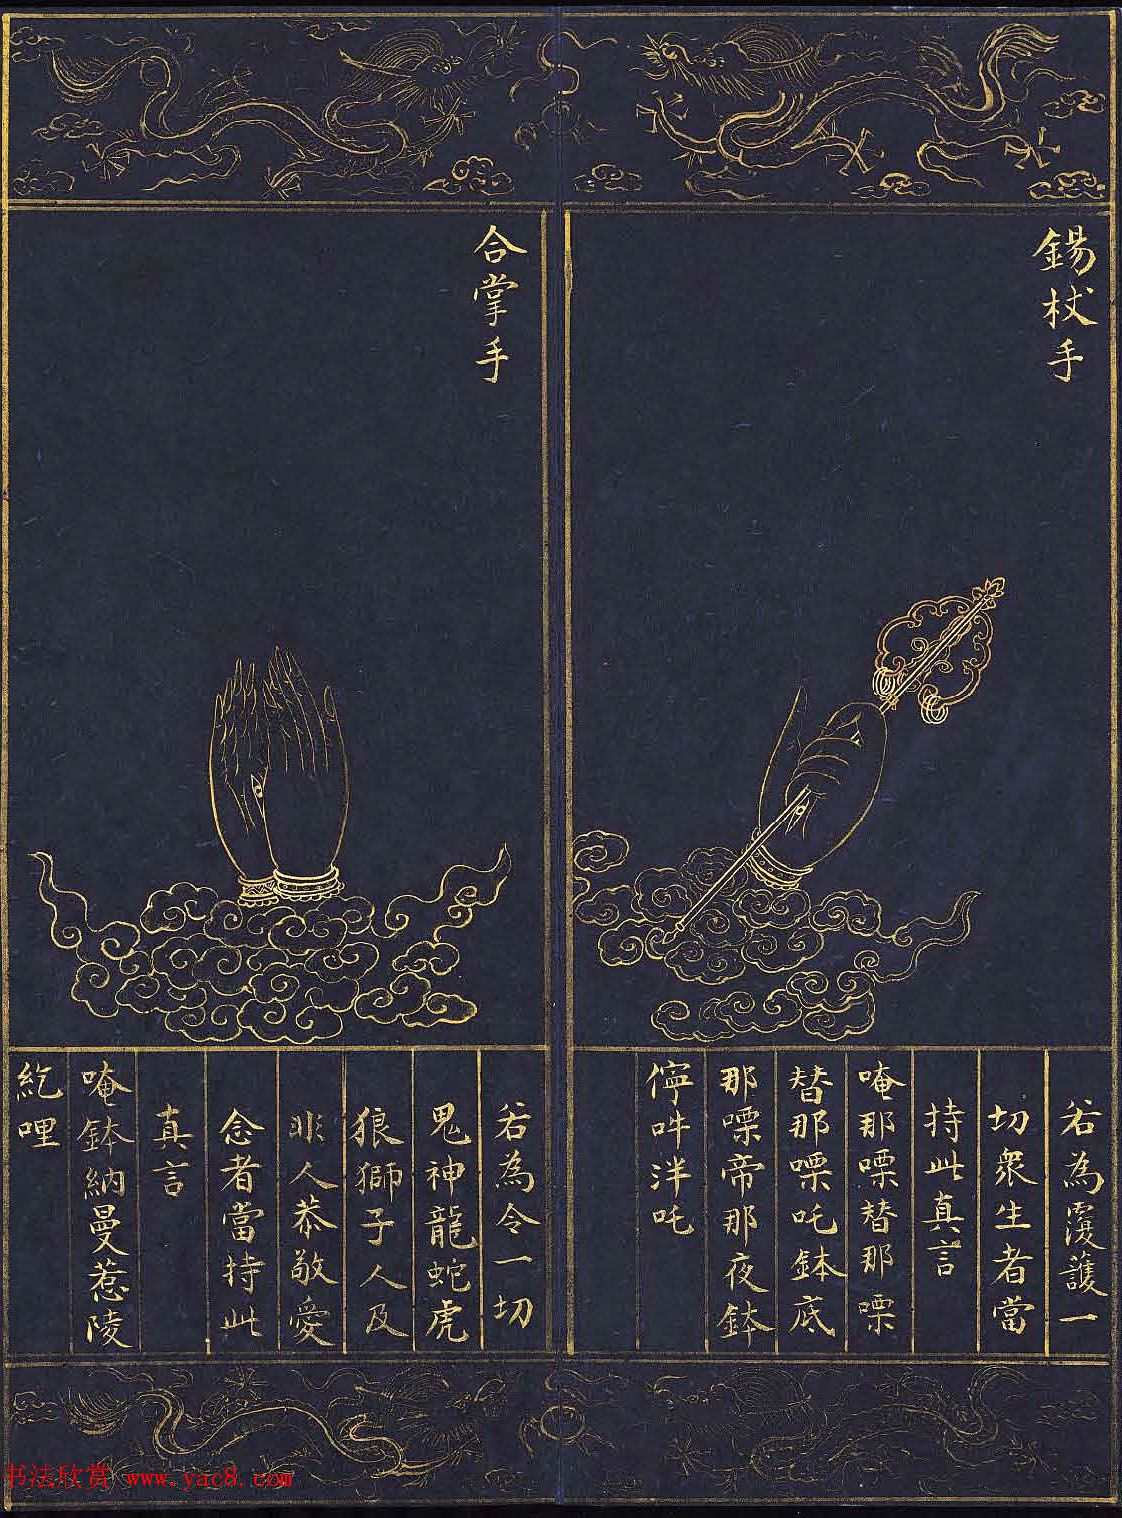 錫杖手
若為覆護一
切眾生者當
持此真言
唵那㗚替那㗚
替那㗚吒鉢底
那㗚帝那夜鉢
儜吽泮吒
合掌手
若為令一切
鬼神龍蛇虎
狼獅子人及
非人恭敬愛
念者當持此
真言
唵鉢納曼惹陵
紇哩
书法欣赏 www.yac8.com